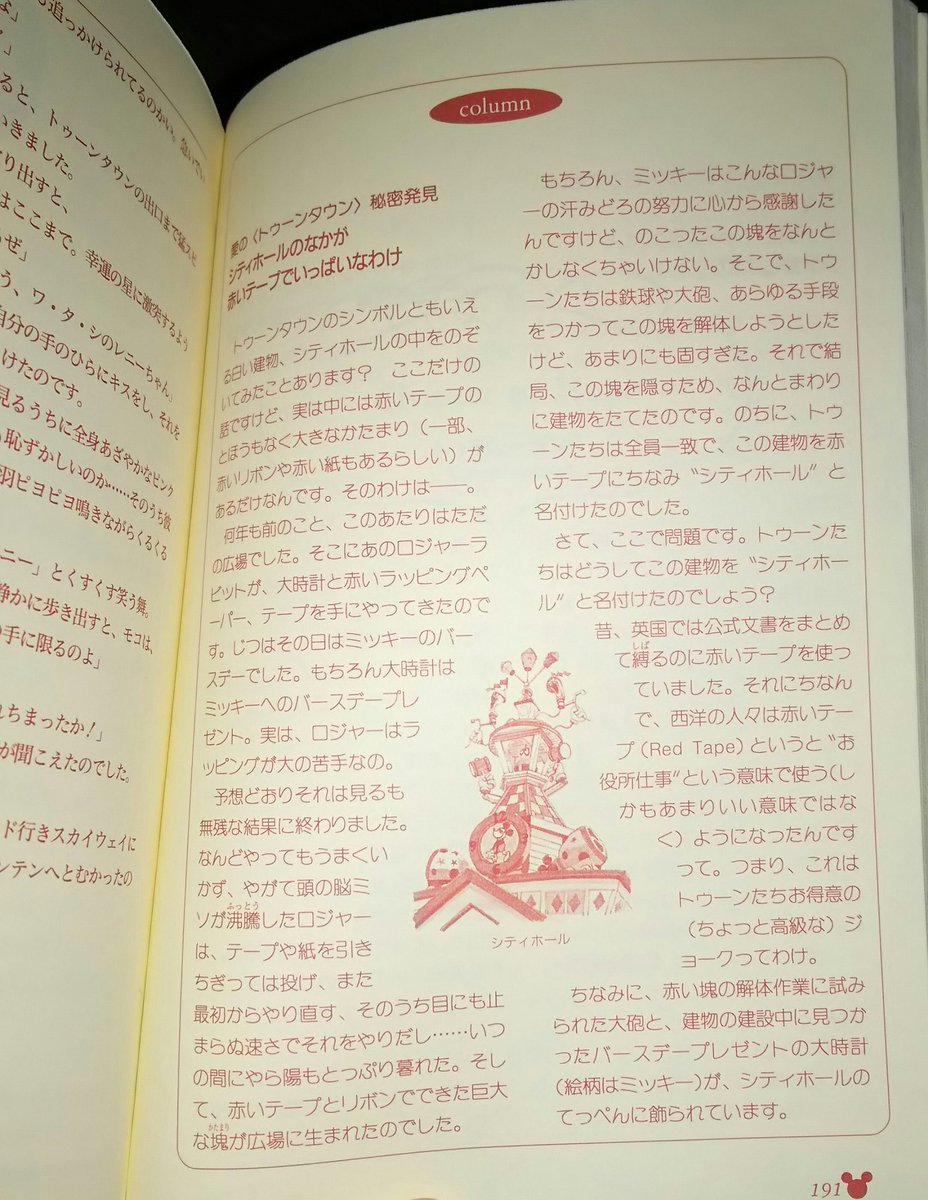 も追っかけられてるのかい。急いで
よ」
」
ると、トゥーンタウンの出口まで猛スピ
いきました。
り出すと、
はここまで。幸運の星に激突するよう
ぜ」
う、ワ・タ・シのレニーちゃん」
自分の手のひらにキスをし、それを
けたのです。
見るうちに全身あざやかなピンク
恥ずかしいのか……そのうち彼
羽ピヨピヨ鳴きながらくるくる
ニー」とくすくす笑う舞。
静かに歩き出すと、モコは、
の手に限るのよ」
れちまったか！」
が聞こえたのでした。
ド行きスカイウェイに
ンテンへとむかったの
column
愛の〈トゥーンタウン〉秘密発見
シティホールのなかが
赤いテープでいっぱいなわけ
トゥーンタウンのシンボルともいえ
る白い建物、シティホールの中をのぞ
いてみたことあります？　ここだけの
話ですけど、実は中には赤いテープの
とほうもなく大きなかたまり（一部、
赤いリボンや赤い紙もあるらしい）が
あるだけなんです。そのわけは――。
何年も前のこと、このあたりはただ
の広場でした。そこにあのロジャーラ
ビットが、大時計と赤いラッピングペ
ーパー、テープを手にやってきたので
す。じつはその日はミッキーのバー
スデーでした。もちろん大時計は
ミッキーへのバースデープレ
ゼント。実は、ロジャーはラ
ッピングが大の苦手なの。
予想どおりそれは見るも
無残な結果に終わりました。
なんどやってもうまくい
かず、やがて頭の脳ミ
ソが沸騰したロジャー
は、テープや紙を引き
ちぎっては投げ、また
最初からやり直す、そのうち目にも止
まらぬ速さでそれをやりだし……いつ
の間にやら陽もとっぷり暮れた。そし
て、赤いテープとリボンでできた巨大
な塊が広場に生まれたのでした。
もちろん、ミッキーはこんなロジャ
ーの汗みどろの努力に心から感謝した
んですけど、のこったこの塊をなんと
かしなくちゃいけない。そこで、トゥ
ーンたちは鉄球や大砲、あらゆる手段
をつかってこの塊を解体しようとした
けど、あまりにも固すぎた。それで結
局、この塊を隠すため、なんとまわり
に建物をたてたのです。のちに、トゥ
ーンたちは全員一致で、この建物を赤
いテープにちなみ〝シティホール〟と
名付けたのでした。
さて、ここで問題です。トゥーンた
ちはどうしてこの建物を〝シティホー
ル〟と名付けたのでしょう？
昔、英国では公式文書をまとめ
て縛るのに赤いテープを使っ
ていました。それにちなん
で、西洋の人々は赤いテー
プ（Red Tape）というと〝お
役所仕事〟という意味で使う（し
かもあまりいい意味ではな
く）ようになったんです
って。つまり、これは
トゥーンたちお得意の
（ちょっと高級な）ジ
ョークってわけ。
ちなみに、赤い塊の解体作業に試み
られた大砲と、建物の建設中に見つか
ったバースデープレゼントの大時計
（絵柄はミッキー）が、シティホールの
てっぺんに飾られています。
シティホール
191